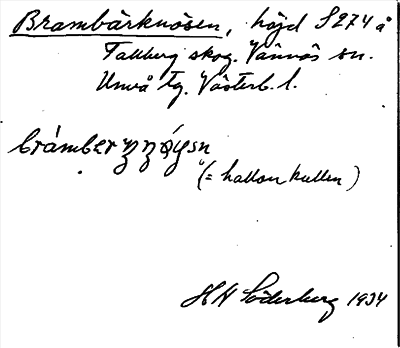 Brambärknösen, höjd S 274 å
Tallberg skog. Vännäs sn.
Umeå tg. Västerb. l.
(= hallonkullen)
HN Söderberg 1934